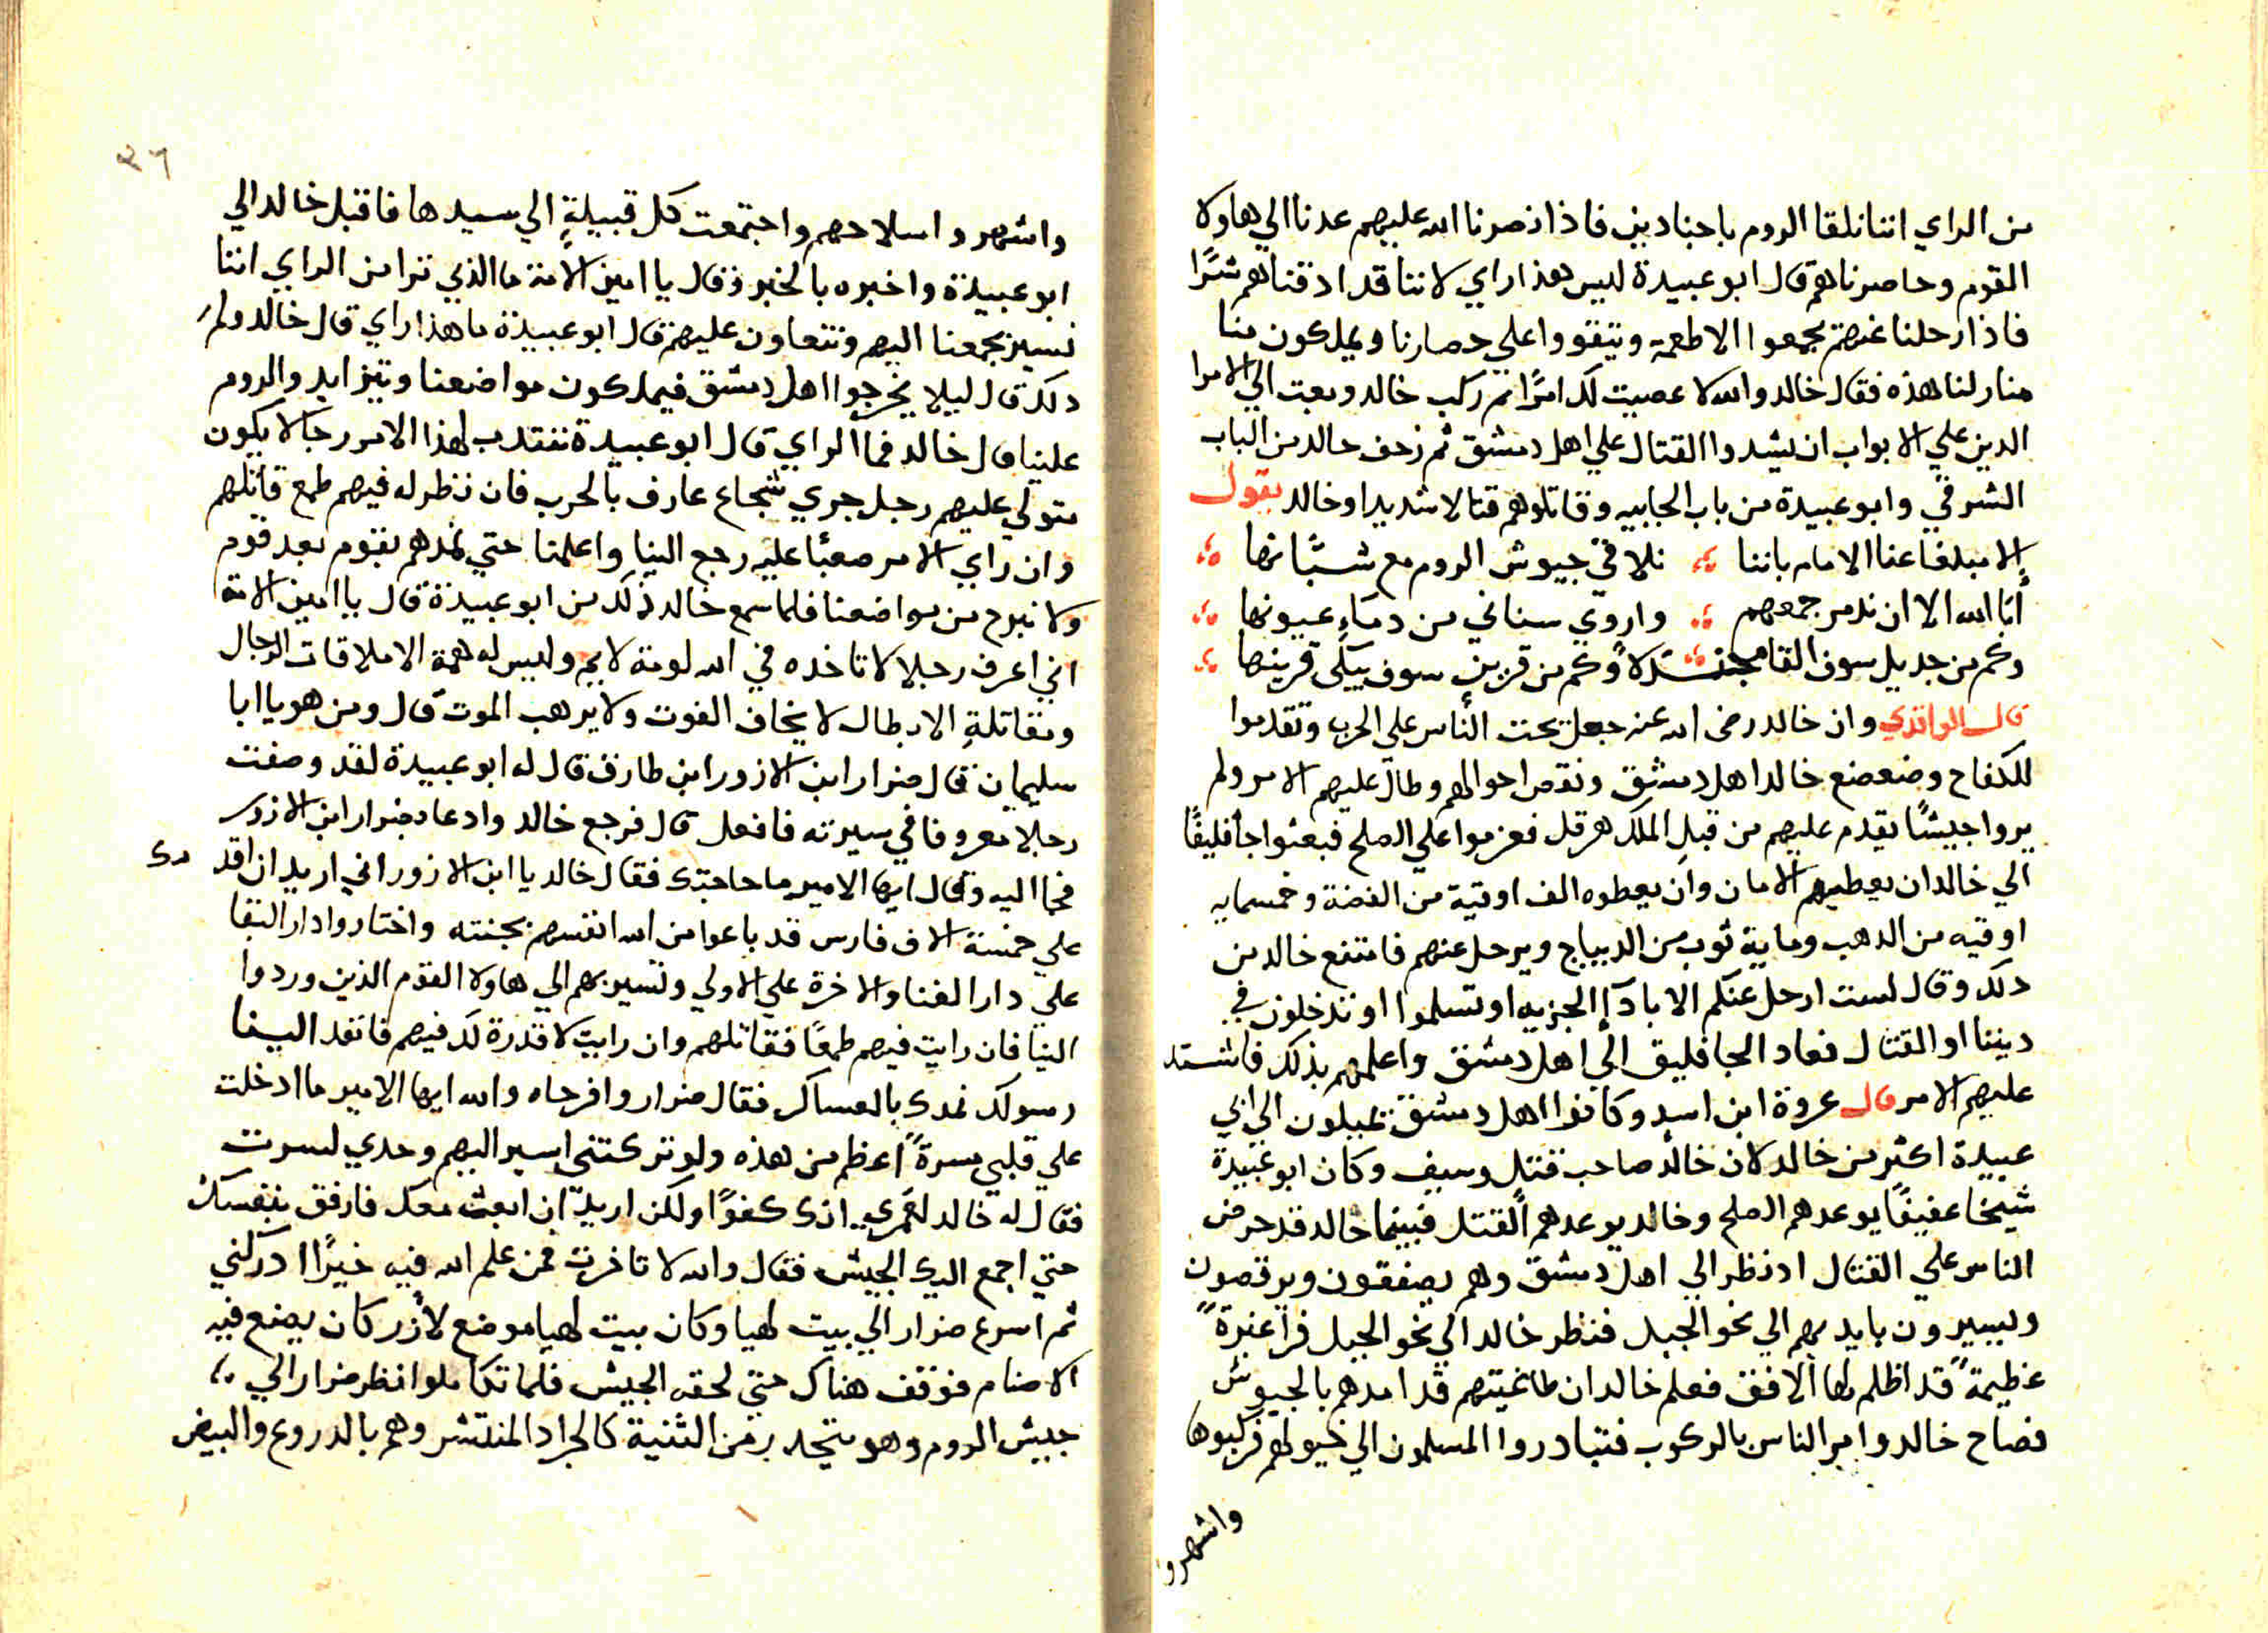 من الراي اننا نلقا الروم باجنادين فاذا نصرنا الله عليهم عدنا الي هاولا
القوم وحاصرناهم قال ابو عبيدة ليس هذا راي لاننا قد ادقناهم شرًا
فاذا رحلنا عنهم يجمعوا الاطعمه ويتقووا علي حصارنا ويملكون منا
منازلنا هذه فقال خالد والله لا عصيت لك امرًا ثم ركب خالد وبعت الي الامرا
الدين علي الابواب ان يشدوا القتال علي اهل دمشق ثم زحف خالد من الباب
الشرقي وابو عبيدة من باب الجابيه وقاتلوهم قتالا شديدا وخالد يقول
الا مبلغا عنا الامام باننا نلاقي جيوش الروم مع شبّانها
أبا الله الا ان ندمر جمعهم واروي سناني من دماءِ عيونها
وكم من جديل سوف القا مجندلا وكم من قرين سوف يبكى قرينها
قال الواقدي وان خالد رضى الله عنه جعل يحت الناس علي الحرب وتقدموا
للكفاح وضعضع خالد اهل دمشق ونقص احوالهم وطال عليهم الامر ولم
يروا جيشًا يقدم عليهم من قبل الملك هرقل فعزموا علي الصلح فبعثوا جاثليقًا
الي خالد ان يعطيهم الامان وان يعطوه الف اوقية من الفضة وخمسمايه
اوقيه من الدهب وماية ثوب من الديباج ويرحل عنهم فامتنع خالد من
دلك وقال لست ارحل عنكم الا بادآءِ الجزيه او تسلموا او تدخلون في
ديننا او القتال فعاد الجاثليق الى اهل دمشق واعلمهم بذلك فاشتد
عليهم الامر قال عروة ابن اسيد وكانوا اهل دمشق يميلون الي ابي
عبيدة اكثر من خالد لان خالد صاحب قتل وسيف وكان ابو عبيدة
شيخا عفيفًا يوعدهم الصلح وخالد يوعدهم القتل فبينما خالد قد حرض
الناس علي القتال اد نظر الي اهل دمشق وهم يصفقون ويرقصون
ويسيرون بايديهم الي نحو الجبل فنظر خالد الي نحو الجبل فرا غبرةً
عظيمةً قد اظلم لها الافق فعلم خالد ان طاغيتهم قد امدهم بالجيوش
فصاح خالد وامر الناس بالركوب فتبادروا المسلمون الي خيولهم فركبوها
واشهروا
٣٦
واشهروا سلاحهم واجتمعت كل قبيلةٍ الي سيدها فاقبل خالد الي
ابو عبيدة واخبره بالخبر وقال يا امين الامة ما الذي ترا من الراي اننا
نسير بجمعنا اليهم ونتعاون عليهم قال ابو عبيدة ما هذا راي قال خالد ولم
دلك قال ليلا يخرجوا اهل دمشق فيملكون مواضعنا ويتزايدوا الروم
علينا قال خالد فما الراي قال ابو عبيدة ننتدب لهذا الامر رجالا يكون
متولي عليهم رجل جري شجاع عارف بالحرب فان نظر له فيهم طمع قاتلهم
وان راي الامر صعبًا عليه رجع الينا واعلمنا حتي نمدهم بقوم بعد قوم
ولا نبرح من مواضعنا فلما سمع خالد ذلك من ابو عبيدة قال يا امين الامة
اني اعرف رجلا لا تاخده في الله لومة لايم وليس له همة الا ملاقات الرجال
ومقاتلةِ الابطال لا يخاف الفوت ولا يرهب الموت قال ومن هو يا ابا
سليمان قال ضرار ابن الازور ابن طارق قال له ابو عبيدة لقد وصفت
رجلا معروفا في سيرته فافعل قال فرجع خالد وادعا بضرار ابن الازور
فجا اليه وقال ايها الامير ما حاجتك فقال خالد يا ابن الازور اني اريد ان اقد مك
علي خمسة الاف فارس قد باعوا من الله انفسهم بجنته واختاروا دار البقا
علي دار الفنا والاخرة علي الاولي وتسير بهم الي هاولا القوم الذين وردوا
الينا فان رايت فيهم طمعًا فقاتلهم وان رايت لا قدرة لك فيهم فانفد الينا
رسولك نمدك بالعساكر فقال ضرار وافرحاه والله ايها الامير ما ادخلت
علي قلبي مسرةً اعظم من هذه ولو تركتني اسير اليهم وحدي لسرت
فقال له خالد لعمري انك كفوًا ولكن اريد ان ابعث معك فارفق بنفسك
حتي اجمع اليك الجيش فقال والله لا تاخرت فمن علم الله فيه خيرًا ادركني
ثم اسرع ضرار الي بيت لهيا وكان بيت لهيا موضع لأزر كان يصنع فيه
الاصنام فوقف هناك حتي لحقه الجيش فلما تكاملوا نظر ضرار الي
جيش الروم وهو يتحدر من الثنية كالجراد المنتشر وهم بالدروع والبيض